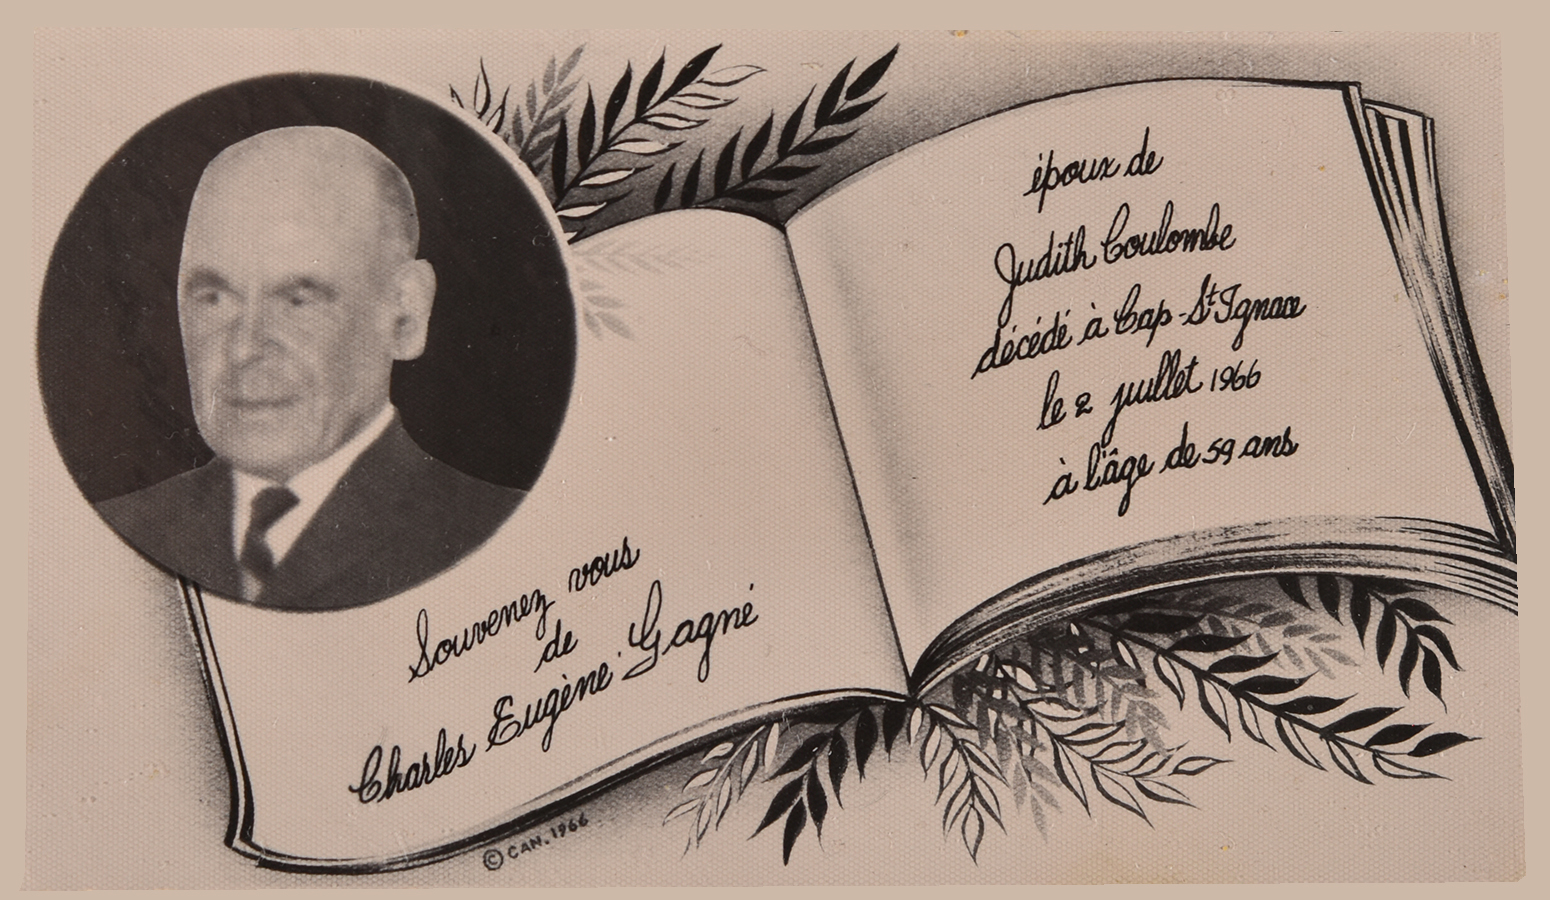 Souvenez vous
de
Charles Eugène Gagné
époux de
Judith Coulombe
décédé à Cap-St Ignace
le 2 juillet 1966
à l'âge de 59 ans
© CAN. 1966